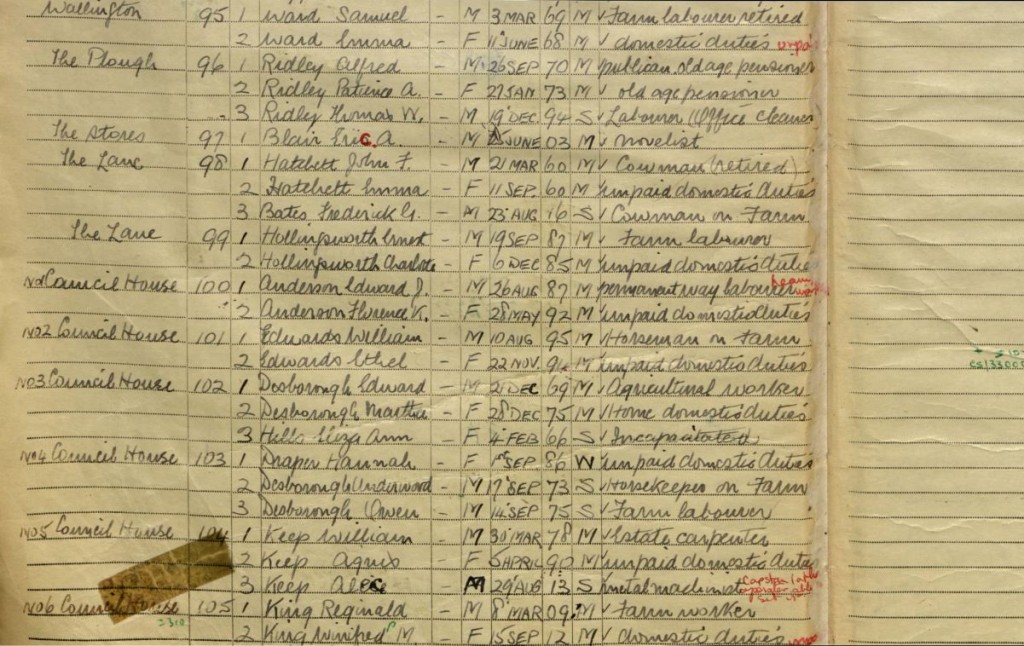 Wallington 95 1 Ward Samuel - M 3 MAR 69 M Farm labourer retired
2 Ward Emma - F 11 JUNE 68 M domestic duties
The Plough 96 1 Ridley Alfred - M 26 SEP 70 M publican, old age pensioner
2 Ridley Patience A. - F 27 JAN 73 M old age pensioner
3 Ridley Thomas W. - M 19 DEC 94 S Labourer (Office cleaner
The Stores 97 1 Blair Eric A. - M 25 JUNE 03 M novelist
The Lane 98 1 Hatchett John F. M 21 MAR 60 M Cowman (retired)
2 Hatchett Emma - F 11 SEP 60 M unpaid domestic duties
3 Bates Frederick G. - M 23 AUG 16 S Cowman on Farm
The Lane 99 1 Hollingsworth Ernest - M 19 SEP 87 M Farm labourer
2 Hollingsworth Charlotte - F 6 DEC 85 M unpaid domestic dutie
No1 Council House 100 1 Anderson Edward J. - M 26 AUG 87 M permanent way labourer heavy
2 Anderson Florence K. - F 28 MAY 92 M unpaid domestic duties
No2 Council House 101 1 Edwards William - M 10 AUG 95 M Horseman on Farm
2 Edwards Ethel - F 22 NOV. 94 M unpaid domestic duties
No3 Council House 102 1 Desborough Edward - M 21 DEC 69 M Agricultural worker
2 Desborough Martha - F 28 DEC 75 M Home domestic duties
3 Hills Eliza Ann - F 4 FEB 66 S Incapacitated
No4 Council House 103 1 Draper Hannah - F 1 SEP 86 W unpaid domestic duties
2 Desborough Underwood - M 17 SEP 73 S Horsekeeper on Farm
3 Desborough Owen - M 14 SEP 75 S Farm labourer
No5 Council House 104 1 Keep William - M 30 MAR 78 M Estate carpenter
2 Keep Agnes - F 5 APRIL 90 M unpaid domestic dutie
3 Keep Alec - M 29 AUG 13 S metal machinist
No6 Council House 105 1 King Reginald - M 8 MAR 09 M Farm worker
2 King Winifred M. - F 15 SEP 12 M domestic duties